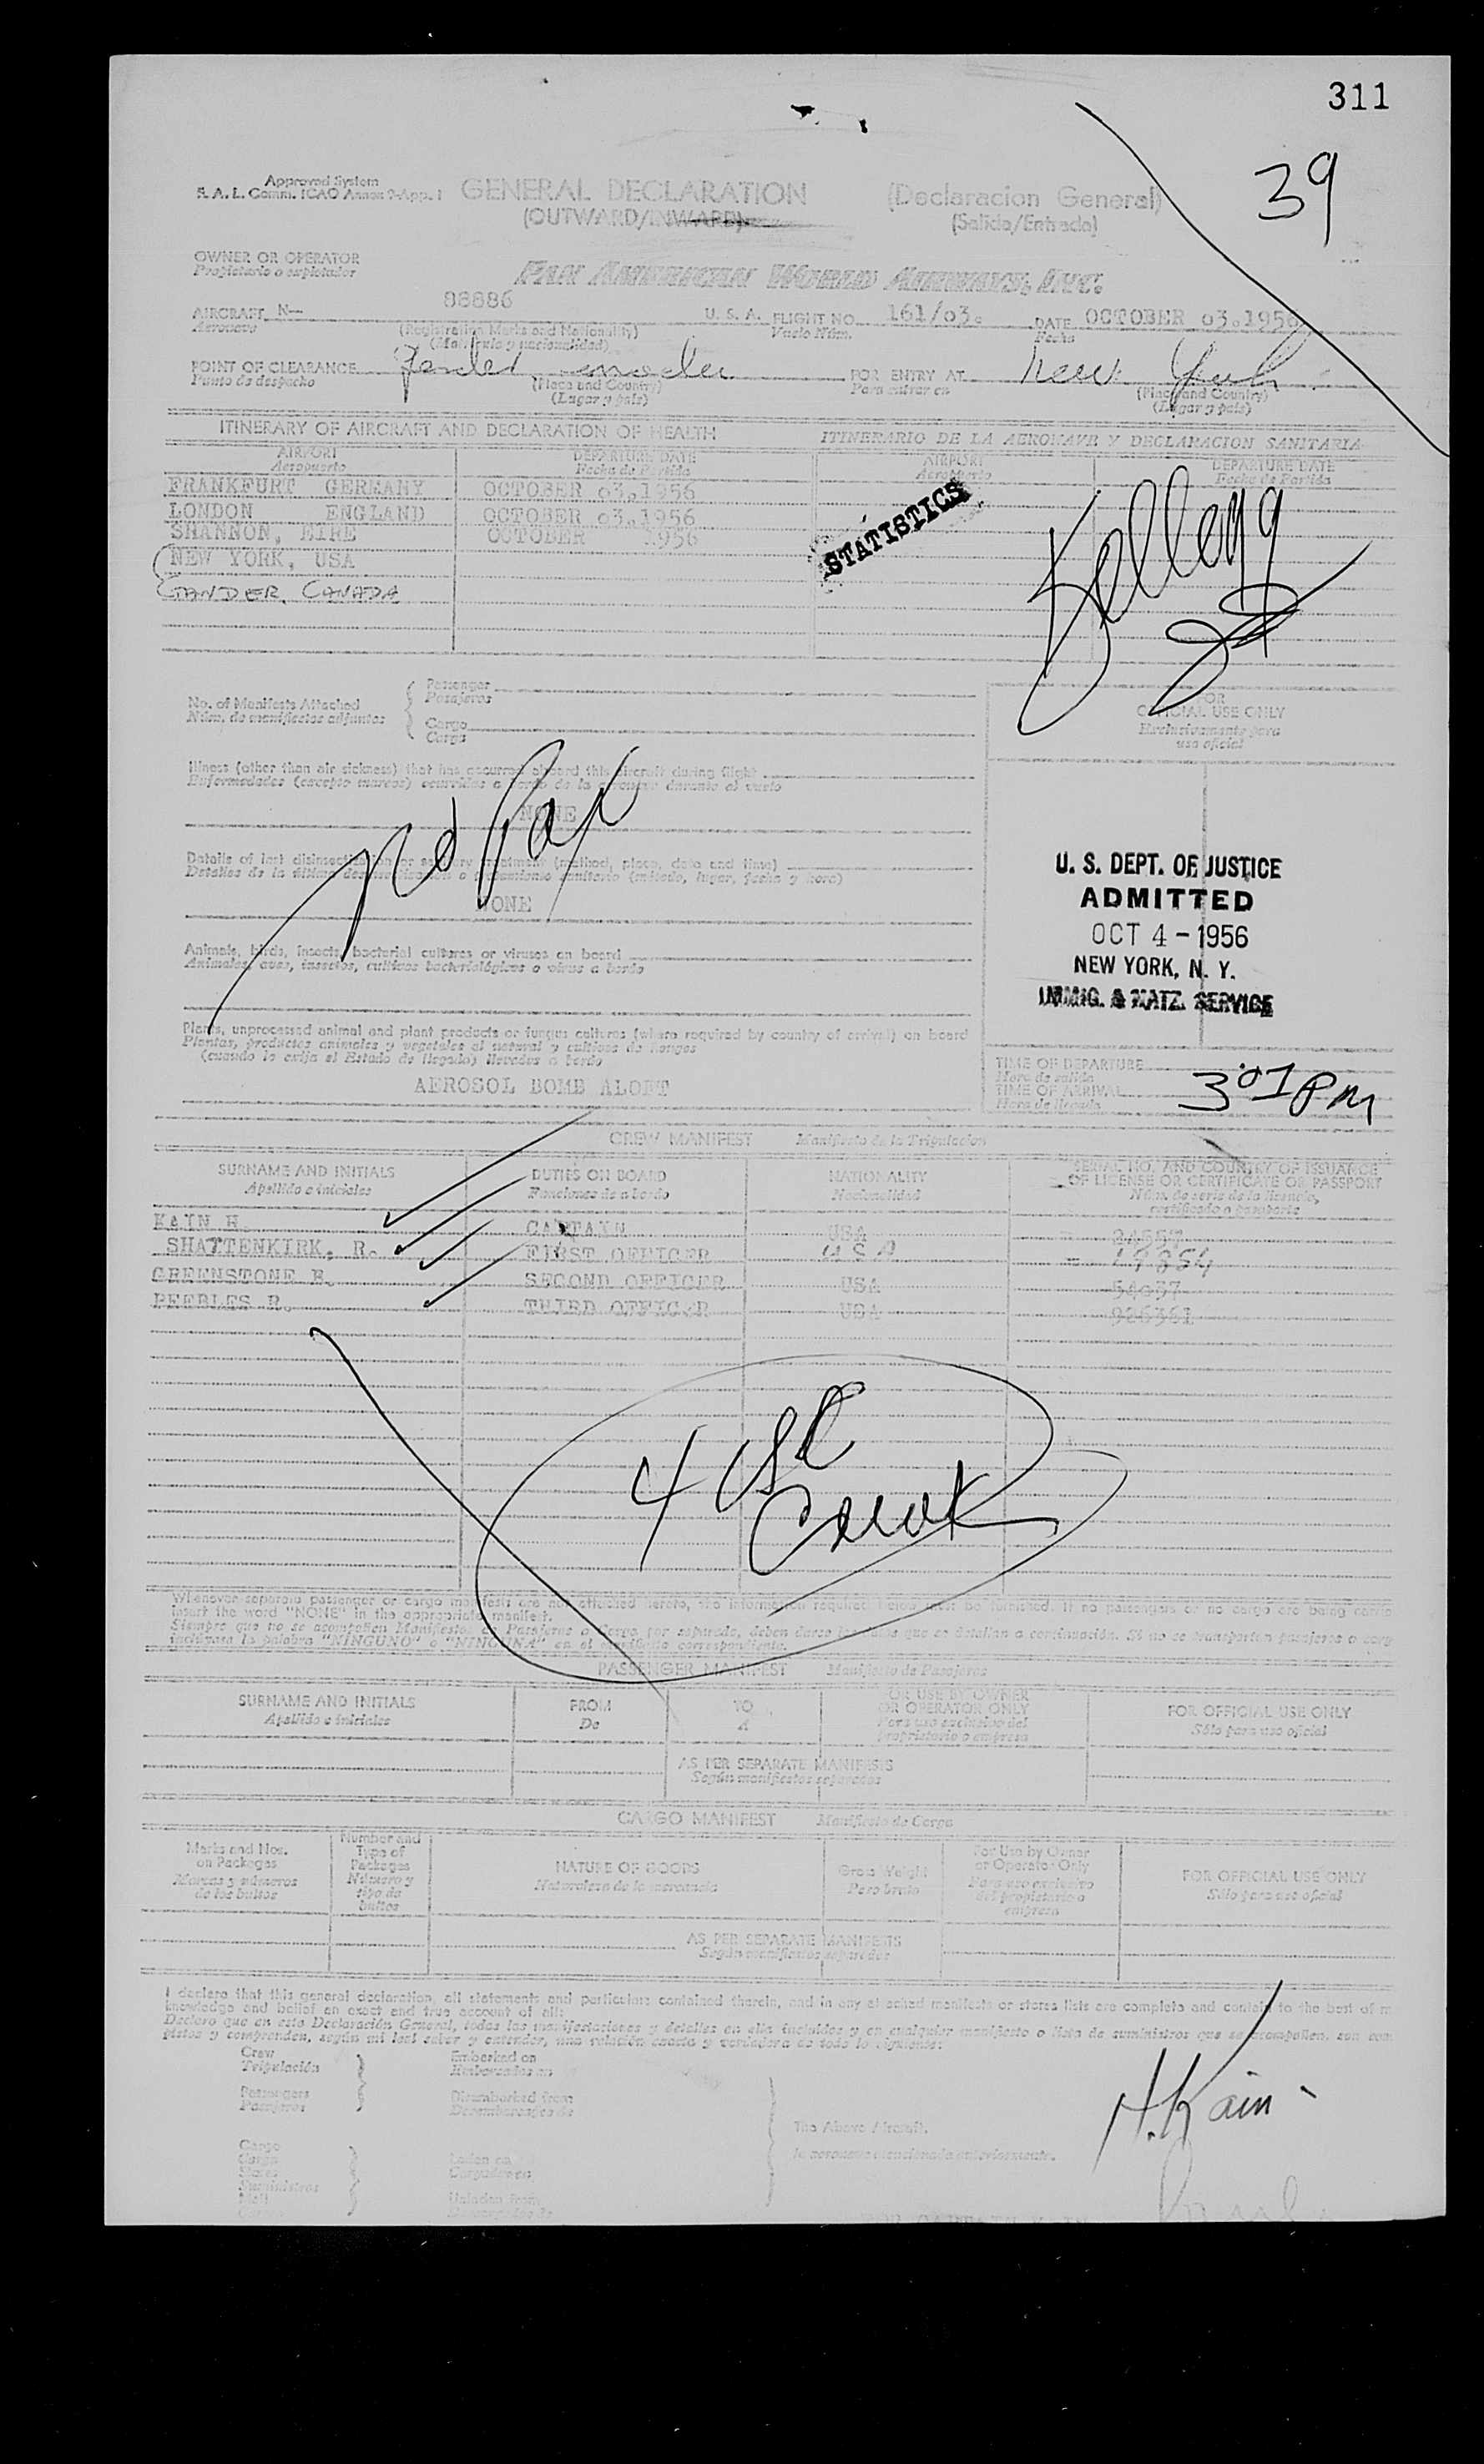 311
39
Approved System
S. A. L. Comm. ICAO Annex 9-App. 1
GENERAL DECLARATION (Declaracion General)
(OUTWARD/INWARD) (Salida/Entrada)
OWNER OR OPERATOR
Propietario o explotador
PAN AMERICAN WORLD AIRWAYS, INC.
AIRCRAFT N— 88886 U. S. A. FLIGHT NO. 161/03. DATE OCTOBER 03.1956
Aeronave (Registration Marks and Nationality) Vuelo Núm. Fecha
(Matrícula y nacionalidad)
POINT OF CLEARANCE Gander FOR ENTRY AT New York
Punto de despacho (Place and Country) Para entrar en (Place and Country)
(Lugar y país) (Lugar y país)
ITINERARY OF AIRCRAFT AND DECLARATION OF HEALTH ITINERARIO DE LA AERONAVE Y DECLARACION SANITARIA
AIRPORT DEPARTURE DATE AIRPORT DEPARTURE DATE
Aeropuerto Fecha de Partida Aeropuerto Fecha de Partida
FRANKFURT GERMANY OCTOBER 03.1956
LONDON ENGLAND OCTOBER 03.1956
SHANNON, EIRE OCTOBER 1956
NEW YORK, USA
GANDER, CANADA
STATISTICS
Kellogg
No. of Manifests Attached
Núm. de manifiestos adjuntos
Passenger
Pasajeros
Cargo
Carga
FOR
OFFICIAL USE ONLY
Exclusivamente para
uso oficial
Illness (other than air sickness) that has occurred aboard this aircraft during flight
Enfermedades (excepto mareos) ocurridas a bordo de la aeronave durante el vuelo
NONE
no Pax
Details of last disinsectization or sanitary treatment (method, place, date and time)
Detalles de la última desinsectización o tratamiento sanitario (método, lugar, fecha y hora)
NONE
Animals, birds, insects, bacterial cultures or viruses on board
Animales, aves, insectos, cultivos bacteriológicos o virus a bordo
Plants, unprocessed animal and plant products or fungus cultures (where required by country of arrival) on board
Plantas, productos animales y vegetales al natural y cultivos de hongos
(cuando lo exija el Estado de llegada) llevados a bordo
AEROSOL BOMB ALOFT
U. S. DEPT. OF JUSTICE
ADMITTED
OCT 4 - 1956
NEW YORK, N. Y.
IMMIG. & NATZ. SERVICE
TIME OF DEPARTURE
Hora de salida
TIME OF ARRIVAL 3:01 PM
Hora de llegada
CREW MANIFEST Manifiesto de la Tripulacion
SURNAME AND INITIALS DUTIES ON BOARD NATIONALITY SERIAL NO. AND COUNTRY OF ISSUANCE
Apellido e iniciales Funciones de a bordo Nacionalidad OF LICENSE OR CERTIFICATE OR PASSPORT
Núm. de serie de la licencia,
certificado o pasaporte
KAIN H. CAPTAIN USA
SHATTENKIRK, R. FIRST OFFICER USA
GREENSTONE B. SECOND OFFICER USA 54037
PEEBLES R. THIRD OFFICER USA 926361
4 USC
Crew
Whenever separate passenger or cargo manifests are not attached hereto, the information required below must be furnished. If no passengers or no cargo are being carried
insert the word "NONE" in the appropriate manifest.
Siempre que no se acompañen Manifiestos de Pasajeros o Carga por separado, deben darse los datos que se detallan a continuación. Si no se transportan pasajeros o carg
inclúyase la palabra "NINGUNO" o "NINGUNA" en el manifiesto correspondiente.
PASSENGER MANIFEST Manifiesto de Pasajeros
SURNAME AND INITIALS FROM TO FOR USE BY OWNER OR OPERATOR ONLY FOR OFFICIAL USE ONLY
Apellido e iniciales De A Para uso exclusivo del propietario o empresa Sólo para uso oficial
AS PER SEPARATE MANIFESTS
Según manifiestos separados
CARGO MANIFEST Manifiesto de Carga
Marks and Nos. on Packages Number and Type of Packages NATURE OF GOODS Gross Weight For Use by Owner or Operator Only FOR OFFICIAL USE ONLY
Marcas y números de los bultos Número y tipo de bultos Naturaleza de la mercancía Peso bruto Para uso exclusivo del propietario o empresa Sólo para uso oficial
AS PER SEPARATE MANIFESTS
Según manifiestos separados
I declare that this general declaration, all statements and particulars contained therein, and in any attached manifests or stores lists are complete and contain to the best of m
knowledge and belief an exact and true account of all:
Declaro que en esta Declaración General, todas las manifestaciones y detalles en ella incluidos y en cualquier manifiesto o lista de suministros que se acompañen, son com
pletos y comprenden, según mi leal saber y entender, una relación exacta y verdadera de todo lo siguiente:
Crew Embarked on
Tripulación Embarcados en
Passengers Disembarked from
Pasajeros Desembarcados de
The Above Aircraft.
la aeronave mencionada anteriormente.
Cargo Laden on
Carga Cargados en
Stores
Suministros
Mail Unladen from
H. Kain